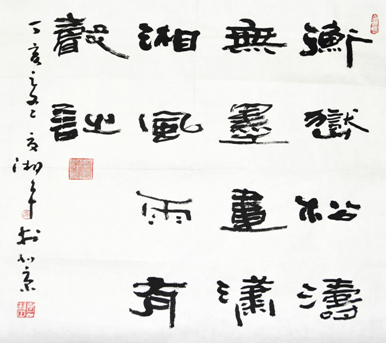 衡嶽松濤
無墨畫瀟
湘風雨有
聲詩
丁亥之湘於北京